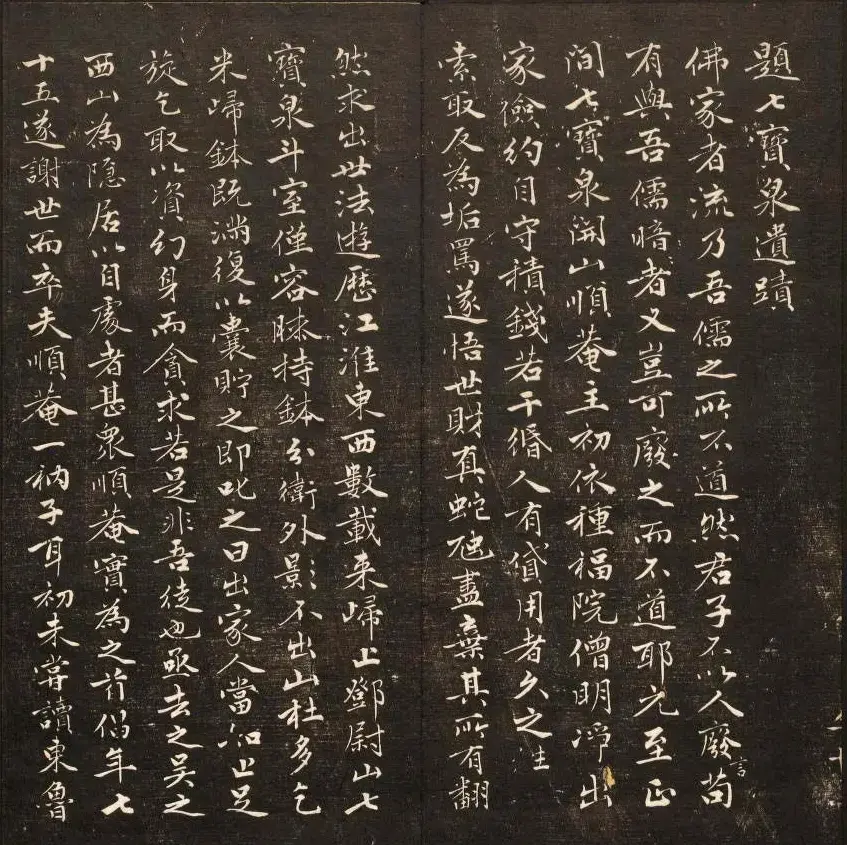 題七寶泉遺蹟
佛家者流乃吾儒之所不道然君子不以人廢言苟
有與吾儒暗者又豈可廢之而不道耶元至正
間七寶泉開山順菴主初依種福院僧明淨出
家儉約自守積錢若干緡人有貸用者久之往
索取反為垢罵遂悟世財真蛇虺盡棄其所有翻
然求出世法遊歷江淮東西數載来歸止鄧尉山七
寶泉斗室僅容膝持鉢分衛外影不出山杜多乞
米歸鉢既滿復以囊貯之即叱之曰出家人當知止足
旋乞取以資幻身而貪求若是非吾徒也亟去之吴之
西山為隐居以自處者甚衆順菴實為之首倡年七
十五遂謝世而卒夫順菴一衲子耳初未嘗讀東魯